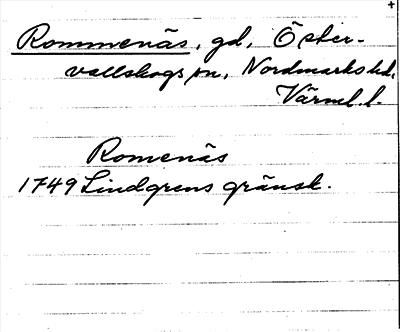 +
Rommenäs, gd, Öster-
vallskogs sn, Nordmarks hd,
Värml. l.
Romenäs
1749 Lindgrens gränsk.